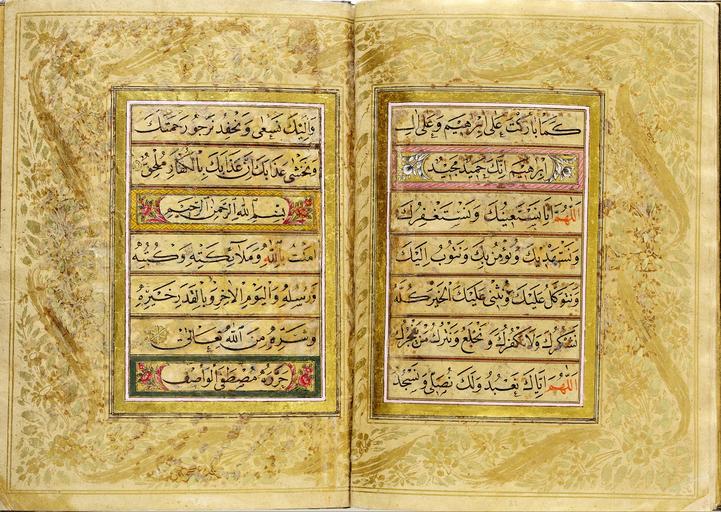 كَمَا بَارَكْتَ عَلَى اِبْرٰهِيمَ وَعَلَى اٰلِ
اِبْرٰهِيمَ اِنَّكَ حَمِيدٌ مَجِيدٌ
اَللّٰهُمَّ اِنَّا نَسْتَعِينُكَ وَنَسْتَغْفِرُكَ
وَنَسْتَهْدِيكَ وَنُؤْمِنُ بِكَ وَنَتُوبُ اِلَيْكَ
وَنَتَوَكَّلُ عَلَيْكَ وَنُثْنِى عَلَيْكَ الْخَيْرَ كُلَّهُ
نَشْكُرُكَ وَلَا نَكْفُرُكَ وَنَخْلَعُ وَنَتْرُكُ مَنْ يَفْجُرُكَ
اَللّٰهُمَّ اِيَّاكَ نَعْبُدُ وَلَكَ نُصَلِّى وَنَسْجُدُ
وَاِلَيْكَ نَسْعٰى وَنَحْفِدُ نَرْجُو رَحْمَتَكَ
وَنَخْشٰى عَذَابَكَ اِنَّ عَذَابَكَ بِالْكُفَّارِ مُلْحِقٌ
بِسْمِ اللّٰهِ الرَّحْمٰنِ الرَّحِيمِ
اٰمَنْتُ بِاللّٰهِ وَمَلٰئِكَتِهِ وَكُتُبِهِ
وَرُسُلِهِ وَالْيَوْمِ الْاٰخِرِ وَبِالْقَدَرِ خَيْرِهِ
وَشَرِّهِ مِنَ اللّٰهِ تَعَالٰى
حَرَّرَهُ مُصْطَفَى الْوَاصِفُ